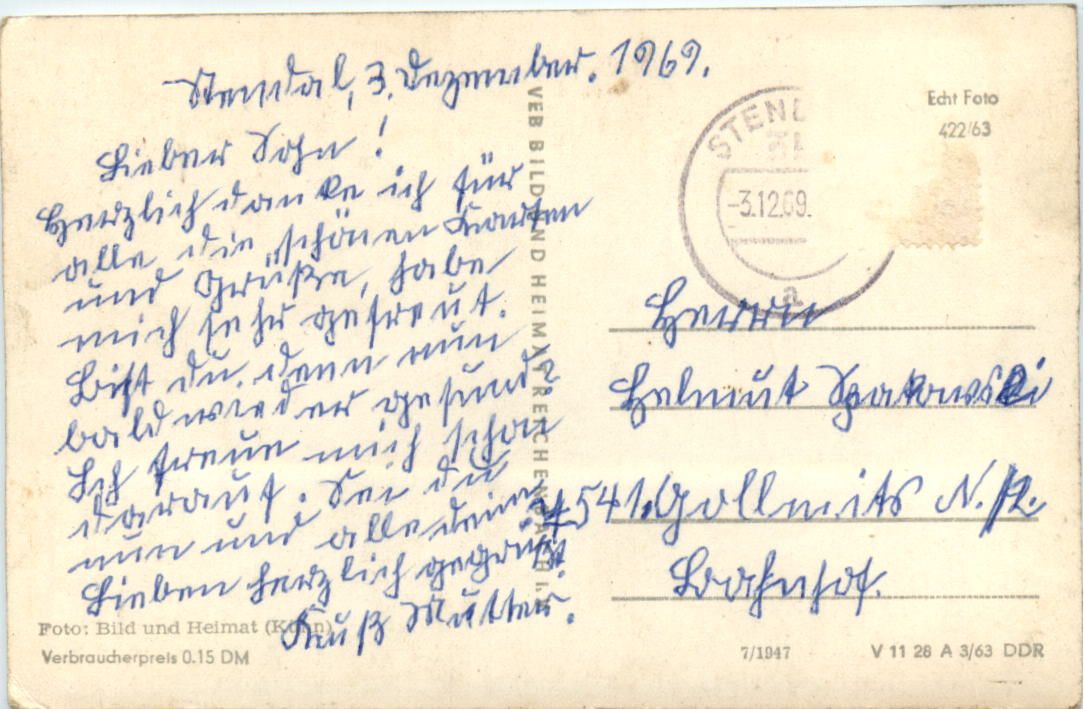 Stendal, 3. Dezember. 1969.
Lieber Sohn!
Herzlich danke ich für
alle die schönen Karten
und Grüße, habe
mich sehr gefreut.
Bist du denn nun
bald wieder gesund?
Ich freue mich schon
darauf. Sei du
nun und alle deine
Lieben herzlich gegrüßt.
Kuß Mutter.
Foto: Bild und Heimat (Kühn)
Verbraucherpreis 0.15 DM
VEB BILD UND HEIMAT REICHENBACH I. V.
STEND
-3.12.69.
a
Echt Foto
422/63
Herrn
Helmut Spakowski
7541. Gollmitz N./L.
Bahnhof.
7/1947
V 11 28 A 3/63 DDR